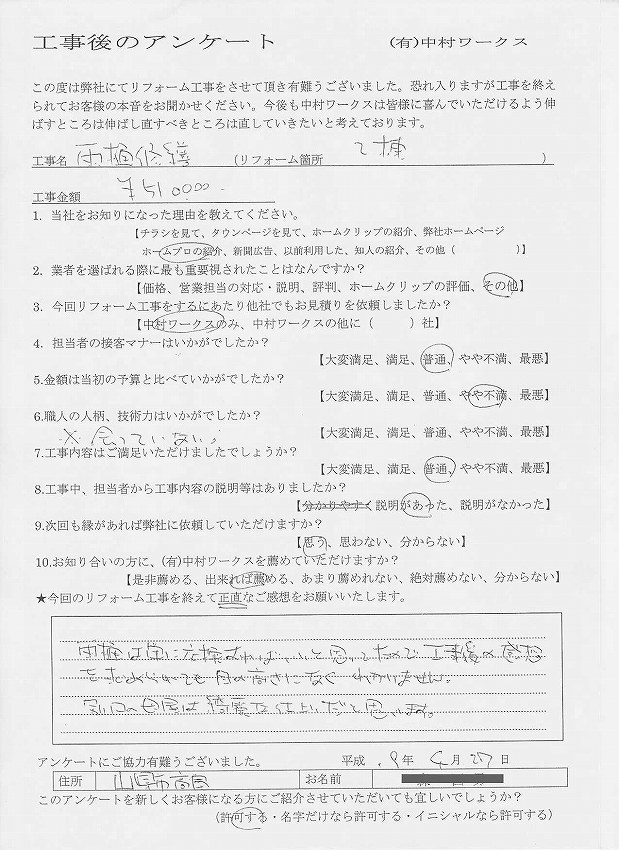 工事後のアンケート (有)中村ワークス
この度は弊社にてリフォーム工事をさせて頂き有難うございました。恐れ入りますが工事を終え
られてお客様の本音をお聞かせください。今後も中村ワークスは皆様に喜んでいただけるよう伸
ばすところは伸ばし直すべきところは直していきたいと考えております。
工事名 雨樋修繕 (リフォーム箇所 2棟 )
工事金額 ¥510000.
1. 当社をお知りになった理由を教えてください。
【チラシを見て、タウンページを見て、ホームクリップの紹介、弊社ホームページ
ホームプロの紹介、新聞広告、以前利用した、知人の紹介、その他（ )】
2. 業者を選ばれる際に最も重要視されたことはなんですか？
【価格、営業担当の対応・説明、評判、ホームクリップの評価、その他】
3. 今回リフォーム工事をするにあたり他社でもお見積りを依頼しましたか？
【中村ワークスのみ、中村ワークスの他に（ ）社】
4. 担当者の接客マナーはいかがでしたか？
【大変満足、満足、普通、やや不満、最悪】
5.金額は当初の予算と比べていかがでしたか？
【大変満足、満足、普通、やや不満、最悪】
6.職人の人柄、技術力はいかがでしたか？
※ 会っていない、 【大変満足、満足、普通、やや不満、最悪】
7.工事内容はご満足いただけましたでしょうか？
【大変満足、満足、普通、やや不満、最悪】
8.工事中、担当者から工事内容の説明等はありましたか？
【分かりやすく説明があった、説明がなかった】
9.次回も縁があれば弊社に依頼していただけますか？
【思う、思わない、分からない】
10.お知り合いの方に、(有)中村ワークスを薦めていただけますか？
【是非薦める、出来れば薦める、あまり薦めれない、絶対薦めない、分からない】
★今回のリフォーム工事を終えて正直なご感想をお願いいたします。
雨樋は雨に 思ってたので 工事後の感想
を求められても目の高さになく わかりません。
は綺麗な仕上がりだと思います。
アンケートにご協力有難うございました。 平成 年 4月27日
住所 山県市高富 お名前
このアンケートを新しくお客様になる方にご紹介させていただいても宜しいでしょうか？
(許可する・名字だけなら許可する・イニシャルなら許可する)